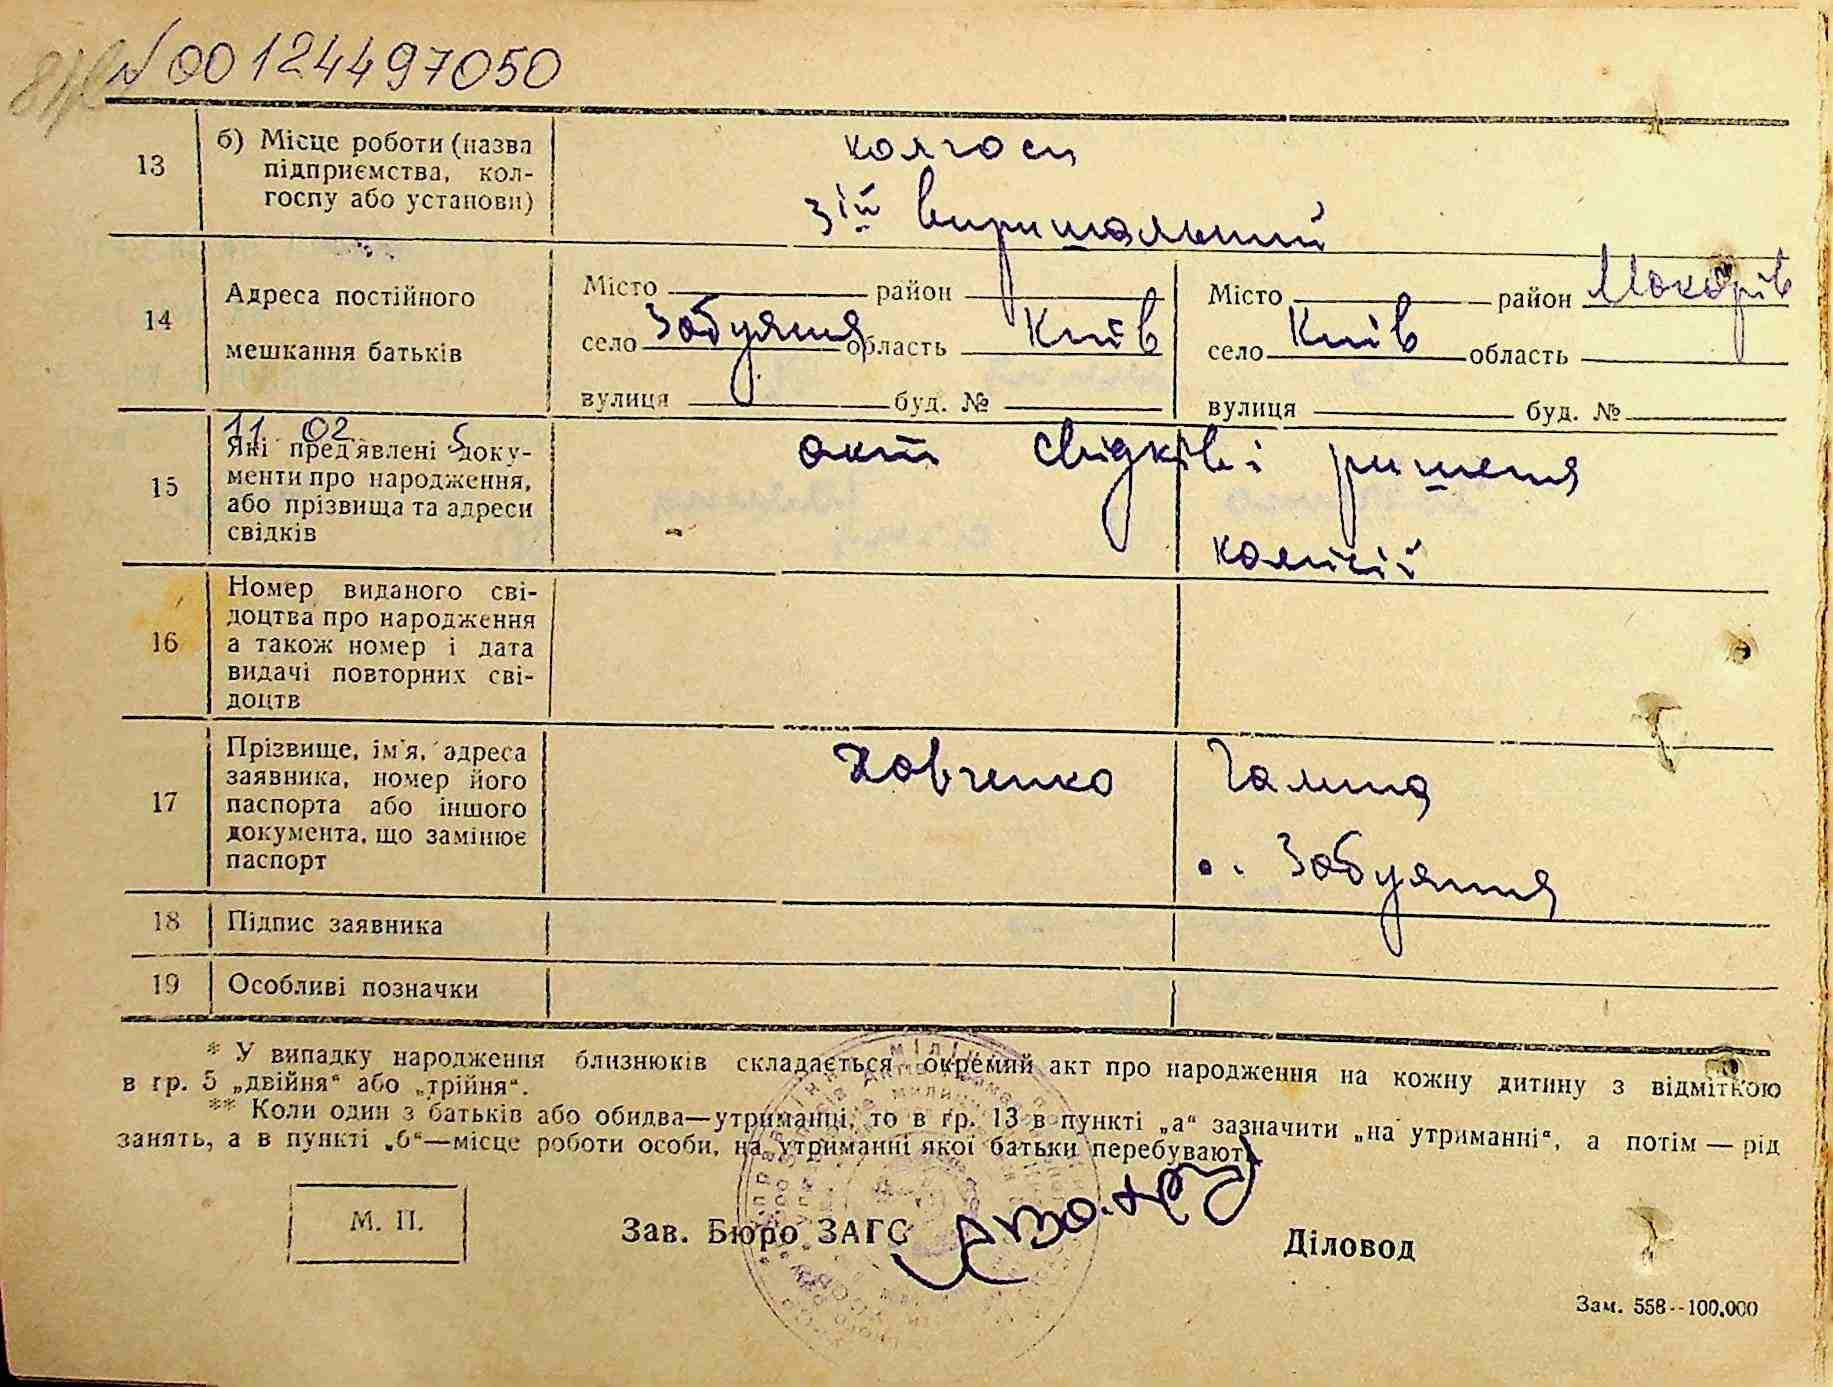 № 00124497050
13 б) Місце роботи (назва
підприємства, кол-
госпу або установи)
колгосп
3ій вирішальний
14 Адреса постійного
мешкання батьків
Місто район
село Забуяння область Київ
вулиця буд. №
Місто район Макарів
село Київ область
вулиця буд. №
11 02 5
15 Які пред'явлені доку-
менти про народження,
або прізвища та адреси
свідків
акт свідків і ришеня
комісії
16 Номер виданого сві-
доцтва про народження
а також номер і дата
видачі повторних сві-
доцтв
17 Прізвище, ім'я, адреса
заявника, номер його
паспорта або іншого
документа, що замінює
паспорт
Ховченко Галина
с. Забуяння
18 Підпис заявника
19 Особливі позначки
* У випадку народження близнюків складається окремий акт про народження на кожну дитину з відміткою
в гр. 5 „двійня“ або „трійня“.
** Коли один з батьків або обидва—утриманці, то в гр. 13 в пункті „а“ зазначити „на утриманні“, а потім — рід
занять, а в пункті „б“—місце роботи особи, на утриманні якої батьки перебувають.
М. П.
Зав. Бюро ЗАГС
Діловод
Зам. 558--100.000